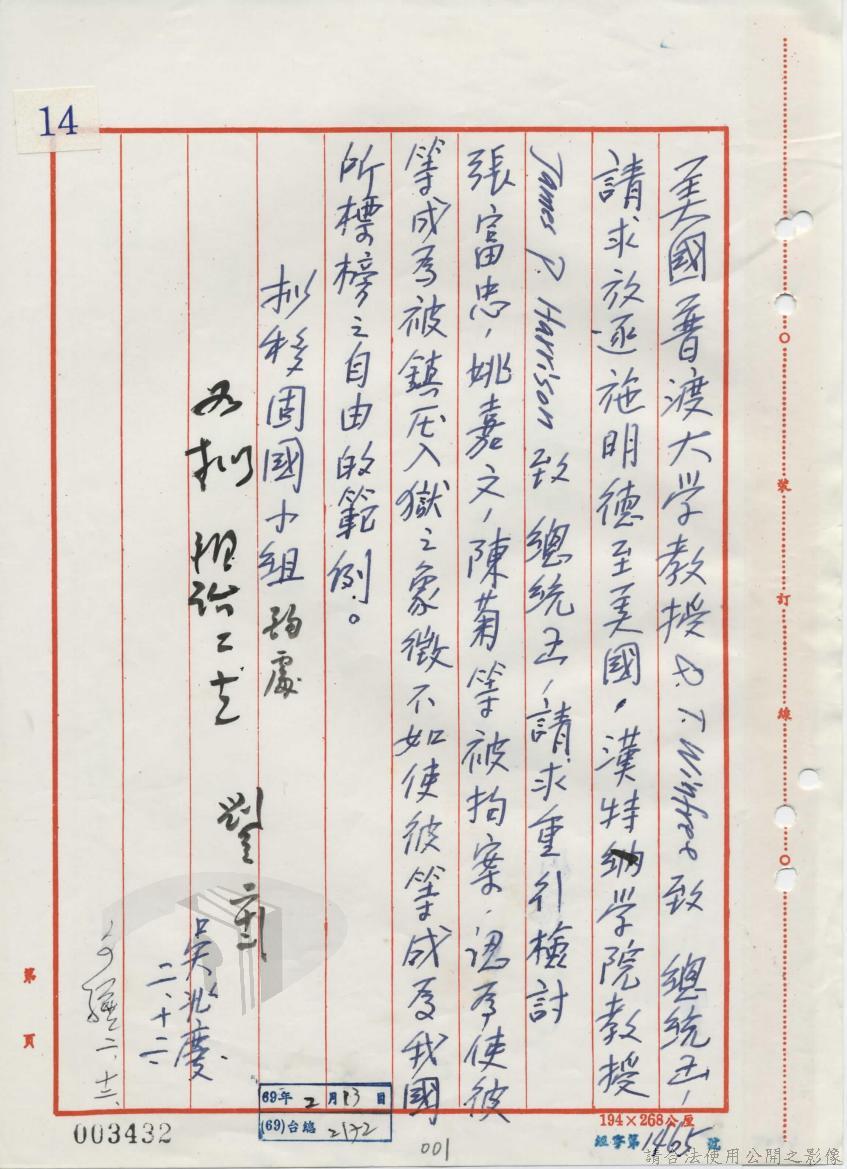 14
美國普渡大学教授 A. T. Winfree 致 總統函,
請求放逐施明德至美國,漢特納学院教授
James P. Harrison 致 總統函,請求重行檢討
張富忠,姚嘉文,陳菊等被拘案,認為使彼
等成為被鎮压入獄之象徵不如使彼等成為我國
所標榜之自由的範例。
拟移固國小組
吳兆慶
二、十二
裝
訂
線
第
頁
69年 2月13日
(69)台總
003432
001
194×268公厘
第1465號
請合法使用公開之影像